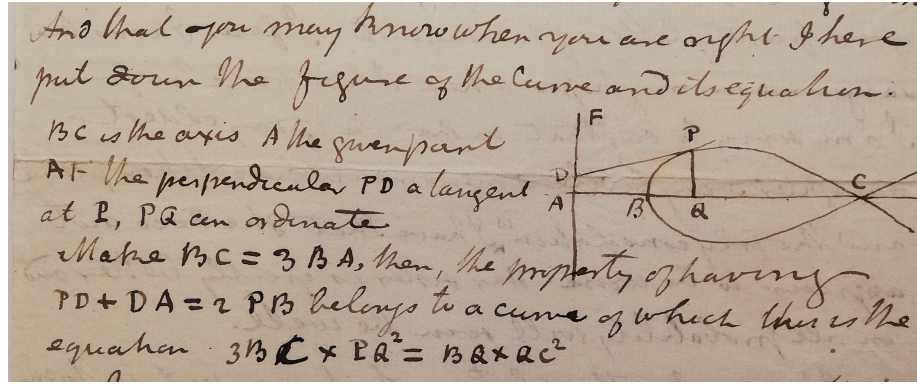 And that you may know when you are right I here
put down the figure of the Curve and its equation.
BC is the axis A the given point
AF the perpendicular PD a tangent
at P, PQ an ordinate
Make BC = 3 BA, then, the property of having
PD + DA = 2 PB belongs to a curve of which this is the
equation 3BC × PQ² = BQ × QC²
F
P
D
A
B
Q
C